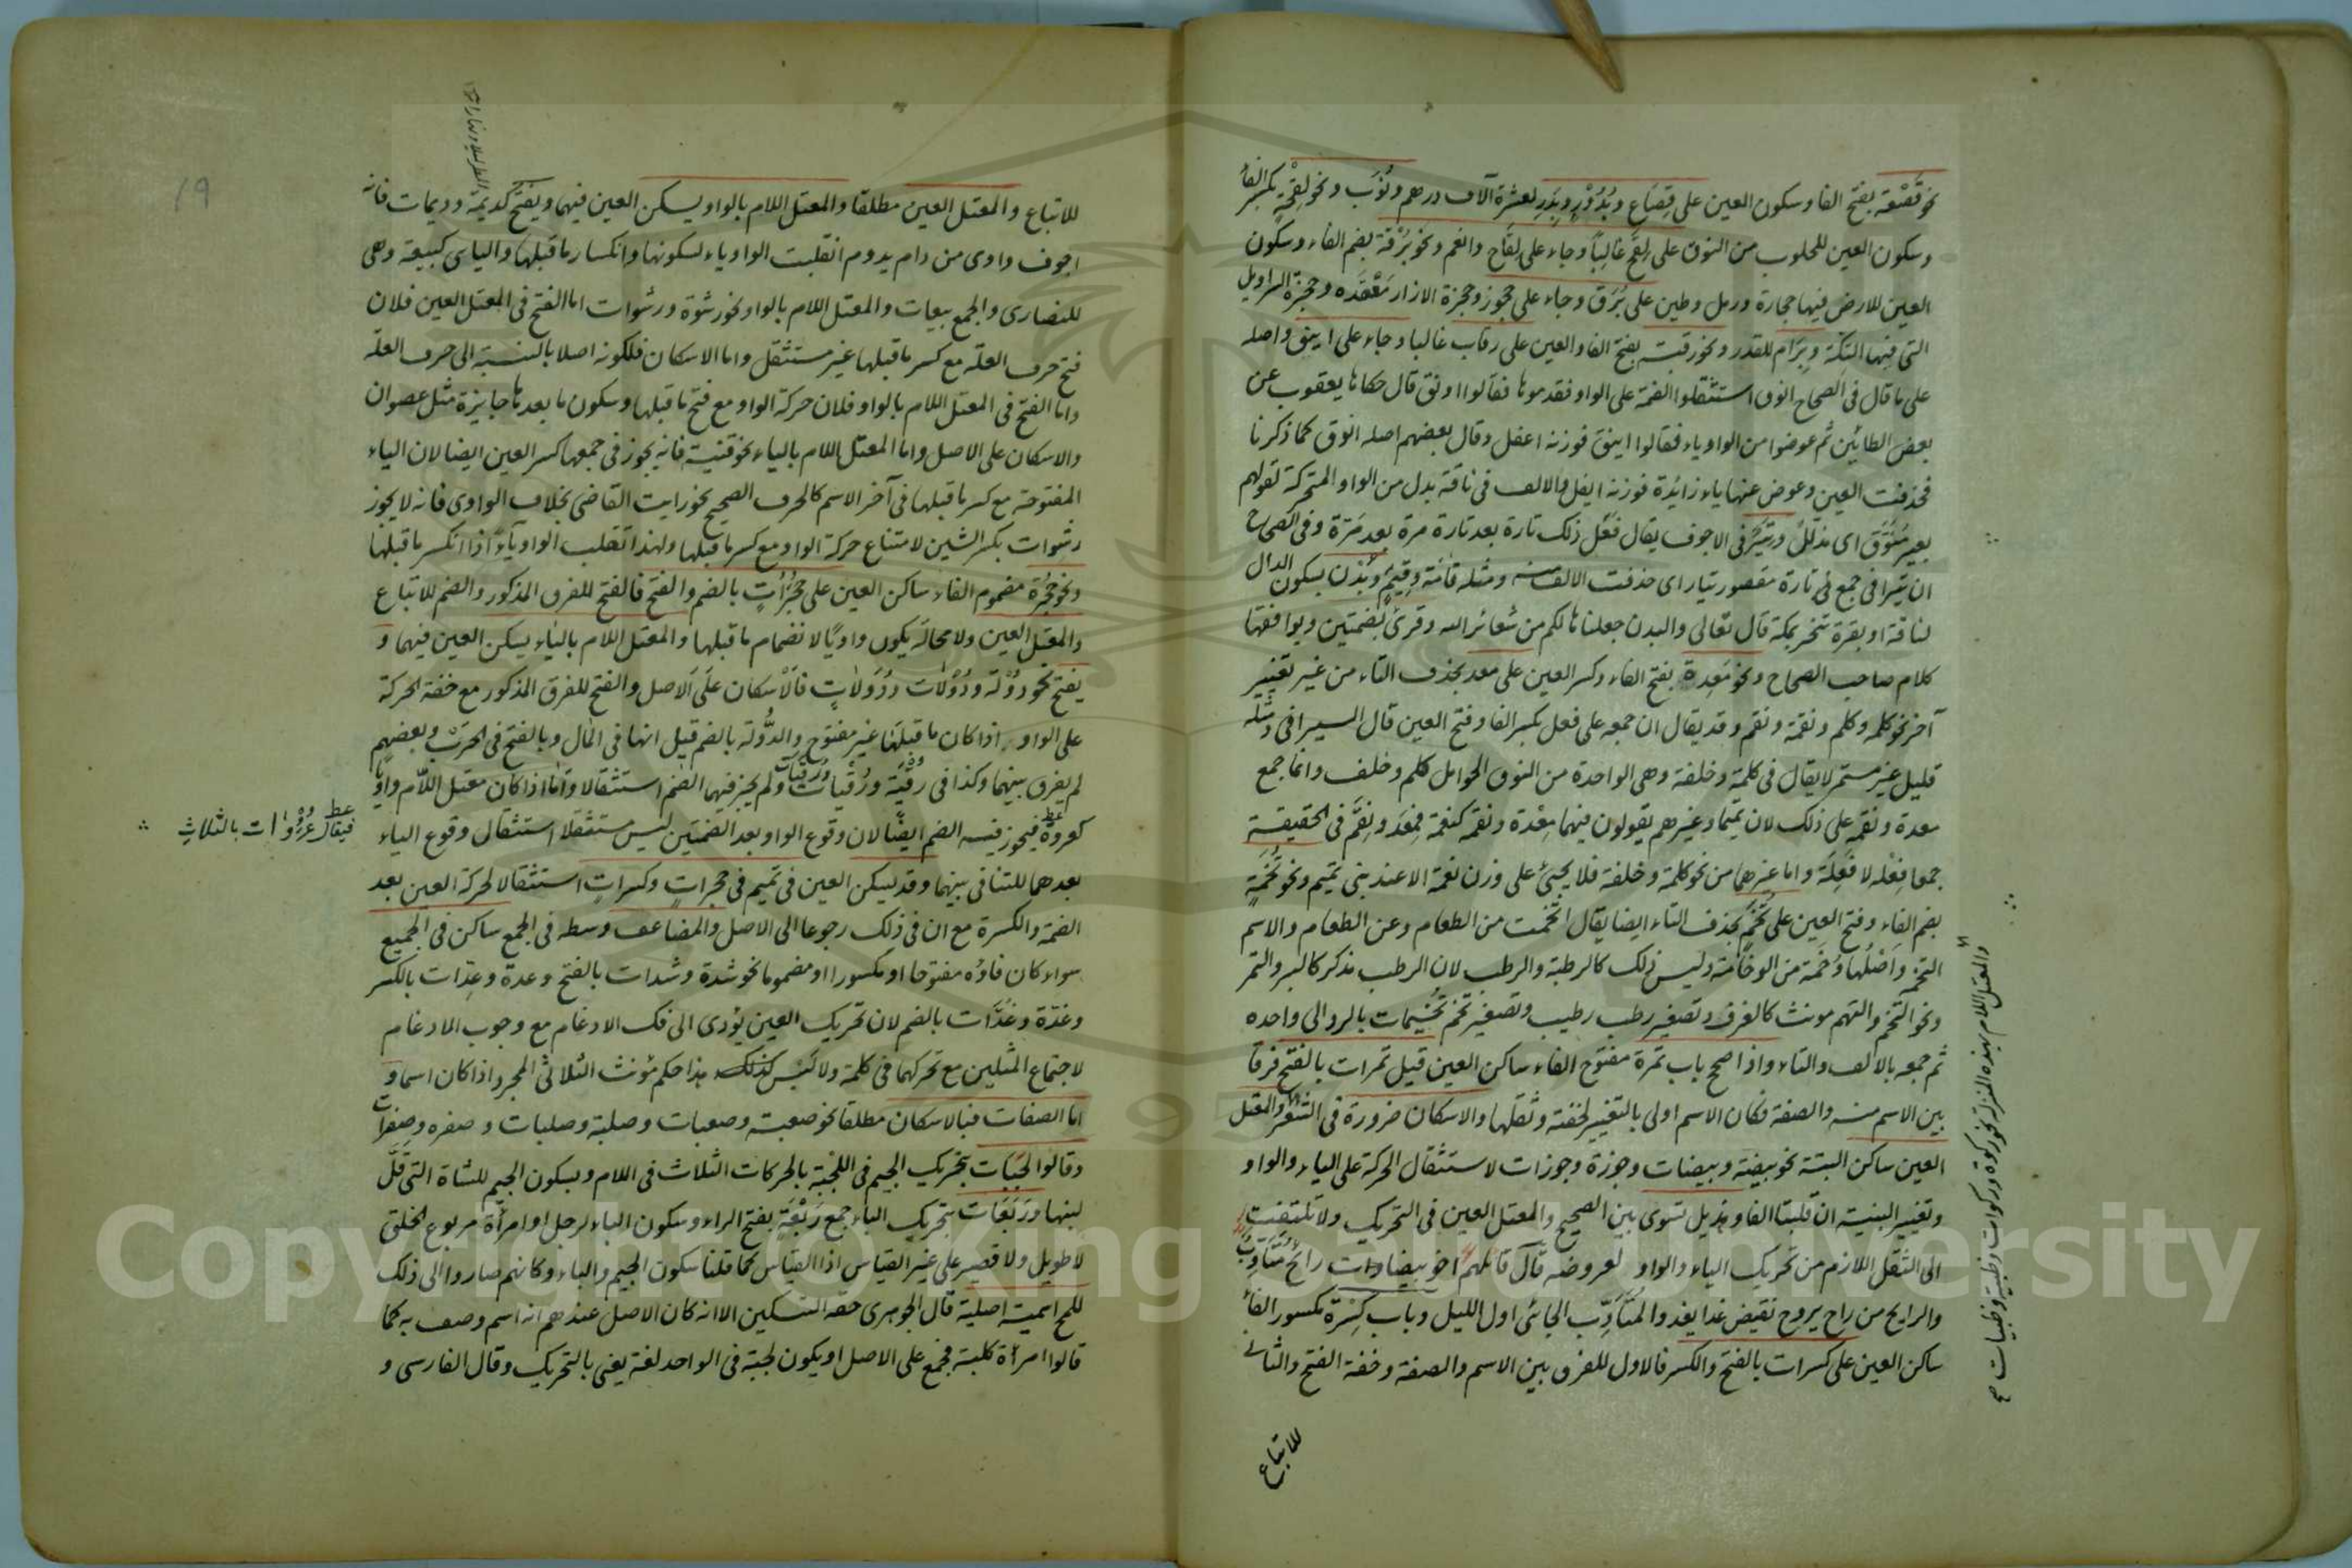 نحو قَصْعة بفتح الفا وسكون العين على قِصَاع وبُدُوْرٍ وبِدَرٍ لعشرة آلاف درهم ونُوَب ونحو لِقْحَةٍ بكسر الفا
وسكون العين للحلوب من النوق على لِقَحٍ غالِباً وجاء على لِقَاح وانعم ونحو بُرْقة بضم الفاء وسكون
العين للارض فيها حجارة ورمل وطين على بُرَق وجاء على حجوز وحجزة الازار مَعْقده وحجزة السراويل
التى فيها التِكّة وبِرَام للقدر ونحو رقبة بفتح الفا والعين على رقاب غالبا وجاء على اينق واصله
على ما قال فى الصحاح انوق استثقلوا الضمة على الواو فقدموها فقالوا اونق قال حكاها يعقوب عن
بعض الطائين ثم عوضوا من الواو ياء فقالوا اينق فوزنه اعفل وقال بعضهم اصله انوق كما ذكرنا
فحذفت العين وعوض عنها ياء زائدة فوزنه ايفل والالف فى ناقة بدل من الواو المتحركة لقولهم
بعير مُنَوَّق اى مذلّل وتِيَرٌ فى الاجوف يقال فَعَل ذلك تارة بعد تارة مرة بعد مَرّة وفى الصحاح
ان تيرا فى جمع تارة مقصور تيار اى حذفت الالف منه ومثله قامَة وقِيَمٌ وبُدْن بسكون الدال
لناقة او بقرة تنحر بمكة قال تعالى والبدن جعلناها لكم من شعائر الله وقرئ بضمتين ويوافقها
كلام صاحب الصحاح ونحو مَعِدة بفتح الفاء وكسر العين على معد بحذف التاء من غير تغيير
آخر نحو كلمة وكلم ونقمة ونقم وقد يقال ان جمعه على فعل بكسر الفا وفتح العين قال السيرافى ومثله
قليل غير مستمر لا يقال فى كلمة وخلفة وهى الواحدة من النوق الحوامل كلم وخلف وانما جمع
معدة ونقمة على ذلك لان تميما وغيرهم يقولون فيهما مِعْدة ونقمة كنعمة فمِعَد ونِقَم فى الحقيقة
جمعا فِعْلة لا فَعِلَة واما غيرهما من نحو كلمة وخلفة فلا يجئ على وزن نعمة الا عند بنى تميم ونحو تُخَمَةٍ
بضم الفاء وفتح العين على تُخَمٍ بحذف التاء ايضا يقال اتخمت من الطعام وعن الطعام والاسم
التخمة واَصْلُها وُخَمَة من الوخامَة وليس ذلك كالرطبة والرطب لان الرطب مذكر كالبر والتمر
ونحو التخم والتهم مونث كالغرف وتصغير رطب رطيب وتصغير تخم تُخَيمات بالرد الى واحده
ثم جمعه بالالف والتاء واذا صحح باب تمرة مفتوح الفاء ساكن العين قيل تمرات بالفتح فرقا
بين الاسم منه والصفة فكان الاسم اولى بالتغيير لخفته وثقلها والاسكان ضرورة فى الشعر والمعتل
العين ساكن البتة نحو بيضة وبيضات وجوزة وجوزات لاستثقال الحركة على الياء والواو
وتغيير البنية ان قلبتا الفا وهذيل تسوى بين الصحيح والمعتل العين فى التحريك ولا تلتفت
الى الثقل اللازم من تحريك الياء والواو لعروضه قال قائلهم اخو بيضات رائح متأوب
والرايح من راح يروح نقيض غدا يغدو والمتأوب الجائى اول الليل وباب كِسْرة مكسور الفا
ساكن العين على كسرات بالفتح والكسر فالاول للفرق بين الاسم والصفة وخفة الفتح والثانى
للاتباع
والمعتل اللام بهذه المنزلة نحو ركوة وركوات وظبية وظبيات صح
للاتباع والمعتل العين مطلقا والمعتل اللام بالواو يسكن العين فيهما ويفتح كديمة وديمات فانه
اجوف واوى من دام يدوم انقلبت الواو ياء لسكونها وانكسار ما قبلها واليائى كبيعة وهى
للنصارى والجمع بيعات والمعتل اللام بالواو نحو رشوة ورشوات اما الفتح فى المعتل العين فلان
فتح حرف العلة مع كسر ما قبلها غير مستثقل واما الاسكان فلكونه اصلا بالنسبة الى حرف العلة
واما الفتح فى المعتل اللام بالواو فلان حركة الواو مع فتح ما قبلها وسكون ما بعدها جايزة مثل عصوان
والاسكان على الاصل واما المعتل اللام بالياء نحو قنية فانه يجوز فى جمعها كسر العين ايضا لان الياء
المفتوحة مع كسر ما قبلها فى آخر الاسم كالحرف الصحيح نحو رايت القاضى بخلاف الواوى فانه لا يجوز
رشوات بكسر الشين لامتناع حركة الواو مع كسر ما قبلها ولهذا تقلب الواو ياءً اذا انكسر ما قبلها
ونحو حجرة مضموم الفاء ساكن العين على حجُرُاتٍ بالضم والفتح فالفتح للفرق المذكور والضم للاتباع
والمعتل العين ولا محالة يكون واويًا لانضمام ما قبلها والمعتل اللام بالياء يسكن العين فيهما و
يفتح نحو دُوْلَة ودُوْلات ودُوَلاتٍ فالاسكان على الاصل والفتح للفرق المذكور مع خفة الحركة
على الواو اذا كان ما قبلها غير مفتوح والدُّولة بالضم قيل انها فى المال وبالفتح فى الحرب وبعضهم
لم يفرق بينهما وكذا فى رقْيَة ورُقْيات ورُقَيات ولم يجز فيهما الضم استثقالا واما اذا كان معتل اللام واويا
كعروة فيجوز فيه الضم ايضًا لان وقوع الواو بعد الضمتين ليس مستثقلا استثقال وقوع الياء
فيقال عُرُوات بالثلاث
بعدهما للتنافى بينهما وقد يسكن العين فى تميم فى حجرات وكسرات استثقالا لحركة العين بعد
الضمة والكسرة مع ان فى ذلك رجوعا الى الاصل والمضاعف وسطه فى الجمع ساكن فى الجميع
سواء كان فاؤه مفتوحا او مكسورا او مضموما نحو شدة وشدات بالفتح وعدة وعِدّات بالكسر
وغدّة وغُدّات بالضم لان تحريك العين يؤدى الى فك الادغام مع وجوب الادغام
لاجتماع المثلين مع تحركهما فى كلمة ولا لَبْس كذلك هذا حكم مؤنث الثلاثى المجرد اذا كان اسما و
اما الصفات فبالاسكان مطلقا نحو صعبة وصعبات وصلبة وصلبات وصفره وصِفْرات
وقالوا لجبَات بتحريك الجيم فى اللجْبة بالحركات الثلاث فى اللام وبسكون الجيم للشاة التى قلّ
لبنها ورَبَعَات بتحريك الباء جمع رَبْعَةٍ بفتح الراء وسكون الباء لرجل او امرأة مربوع الخلق
لا طويل ولا قصير على غير القياس اذا القياس كما قلنا سكون الجيم والباء وكانهم صاروا الى ذلك
للمح اسمية اصلية قال الجوهرى حقه التسكين الا انه كان الاصل عندهم انه اسم وصف به كما
قالوا امرأة كلبة فجمع على الاصل او يكون لجبة فى الواحد لغة يعنى بالتحريك وقال الفارسى و
19
Copyright © King Saud University